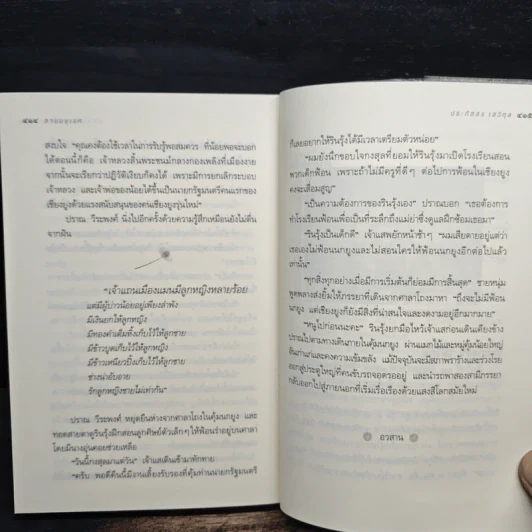 ๔๑๔ ดาวอมฤเดช
สงบใจ "คุณคงต้องใช้เวลาในการรับรู้พอสมควร ที่น้อยพอจะบอก
ได้ตอนนี้ก็คือ เจ้าหลวงสิ้นพระชนม์กลางกองเพลิงที่เมืองงาย
จากนั้นจะเรียกว่าปฏิวัติเงียบก็คงได้ เพราะมีการยกเลิกระบอบ
เจ้าหลวง และเจ้าพ่อของน้อยได้ขึ้นเป็นนายกรัฐมนตรีคนแรกของ
เชียงยูงด้วยแรงสนับสนุนของคนเชียงยูงรุ่นใหม่"
ปราณ วีระพงศ์ นิ่งไปอีกครั้งด้วยความรู้สึกเหมือนยังไม่ตื่น
จากฝัน
"เจ้าแถนเมืองแมนมีลูกหญิงหลายร้อย
แต่มีผู้บ่าวน้อยอยู่เพียงลำพัง
มีเงินยกให้ลูกหญิง
มีทองคำเต็มทิ้งเก็บไว้ให้ลูกชาย
มีข้าวบูดเก็บไว้ให้ลูกหญิง
มีข้าวเหนียวปิ้งเก็บไว้ให้ลูกชาย
ช่างน่าอับอาย
รักลูกหญิงชายไม่เท่ากัน"
ปราณ วีระพงศ์ หยุดยืนห่างจากศาลาโถงในคุ้มนกยูง และ
ทอดสายตาดูรินรุ้งฝึกสอนลูกศิษย์ตัวเล็กๆ ให้ฟ้อนรำอยู่บนศาลา
โดยมีนางอุ่นคอยช่วยเหลือ
"วันนี้กงสุลมาแต่วัน" เจ้าแสดินเข้ามาทักทาย
"ครับ พอดีคืนนี้มีงานเลี้ยงรับรองที่คุ้มท่านนายกรัฐมนตรี
ประภัสสร เสวิกุล ๔๑๕
ก็เลยอยากให้รินรุ้งได้มีเวลาเตรียมตัวหน่อย"
"ผมยังนึกขอบใจกงสุลที่ยอมให้รินรุ้งมาเปิดโรงเรียนสอน
พวกเด็กฟ้อน เพราะถ้าไม่มีครูที่ดีๆ ต่อไปการฟ้อนเชียงยูง
คงจะเสื่อมสูญ"
"เป็นความต้องการของรินรุ้งเอง" ปราณบอก "เธอต้องการ
ทำโรงเรียนฟ้อนเพื่อเป็นที่ระลึกถึงแม่ย่าซึ่งดูแลฝึกซ้อมเธอมา"
"รินรุ้งเป็นเด็กดี" เจ้าแสพยักหน้าช้าๆ "ผมเสียดายอยู่แต่ว่า
เธอเองไม่ฟ้อนนกยูงและไม่สอนใครให้ฟ้อนนกยูงอีกต่อไปแล้ว
เท่านั้น"
"ทุกสิ่งทุกอย่างเมื่อมีการเริ่มต้นก็ย่อมมีการสิ้นสุด" ชายหนุ่ม
พูดพลางส่งยิ้มให้ภรรยาที่เดินจากศาลาโถงมาหา "ถึงจะไม่มีฟ้อน
นกยูง แต่เชียงยูงก็ยังมีสิ่งที่น่าสนใจและงดงามอยู่อีกมากมาย"
"หนูไปก่อนนะคะ" รินรุ้งยกมือไหว้เจ้าแสก่อนเดินเคียงข้าง
ปราณไปตามทางเดินภายในคุ้มนกยูง ผ่านแมกไม้และหมู่คุ้มน้อยใหญ่
อันเก่าแก่และคงความเข้มขลัง แม้ปัจจุบันจะมีสภาพร้างและร่วงโรย
ออกสู่ประตูใหญ่ที่คนขับรถจอดรออยู่ และนำรถพาสองสามีภรรยา
กลับออกไปสู่ภายนอกที่เริ่มเรื่อเรืองด้วยแสงสีโลกสมัยใหม่
อวสาน